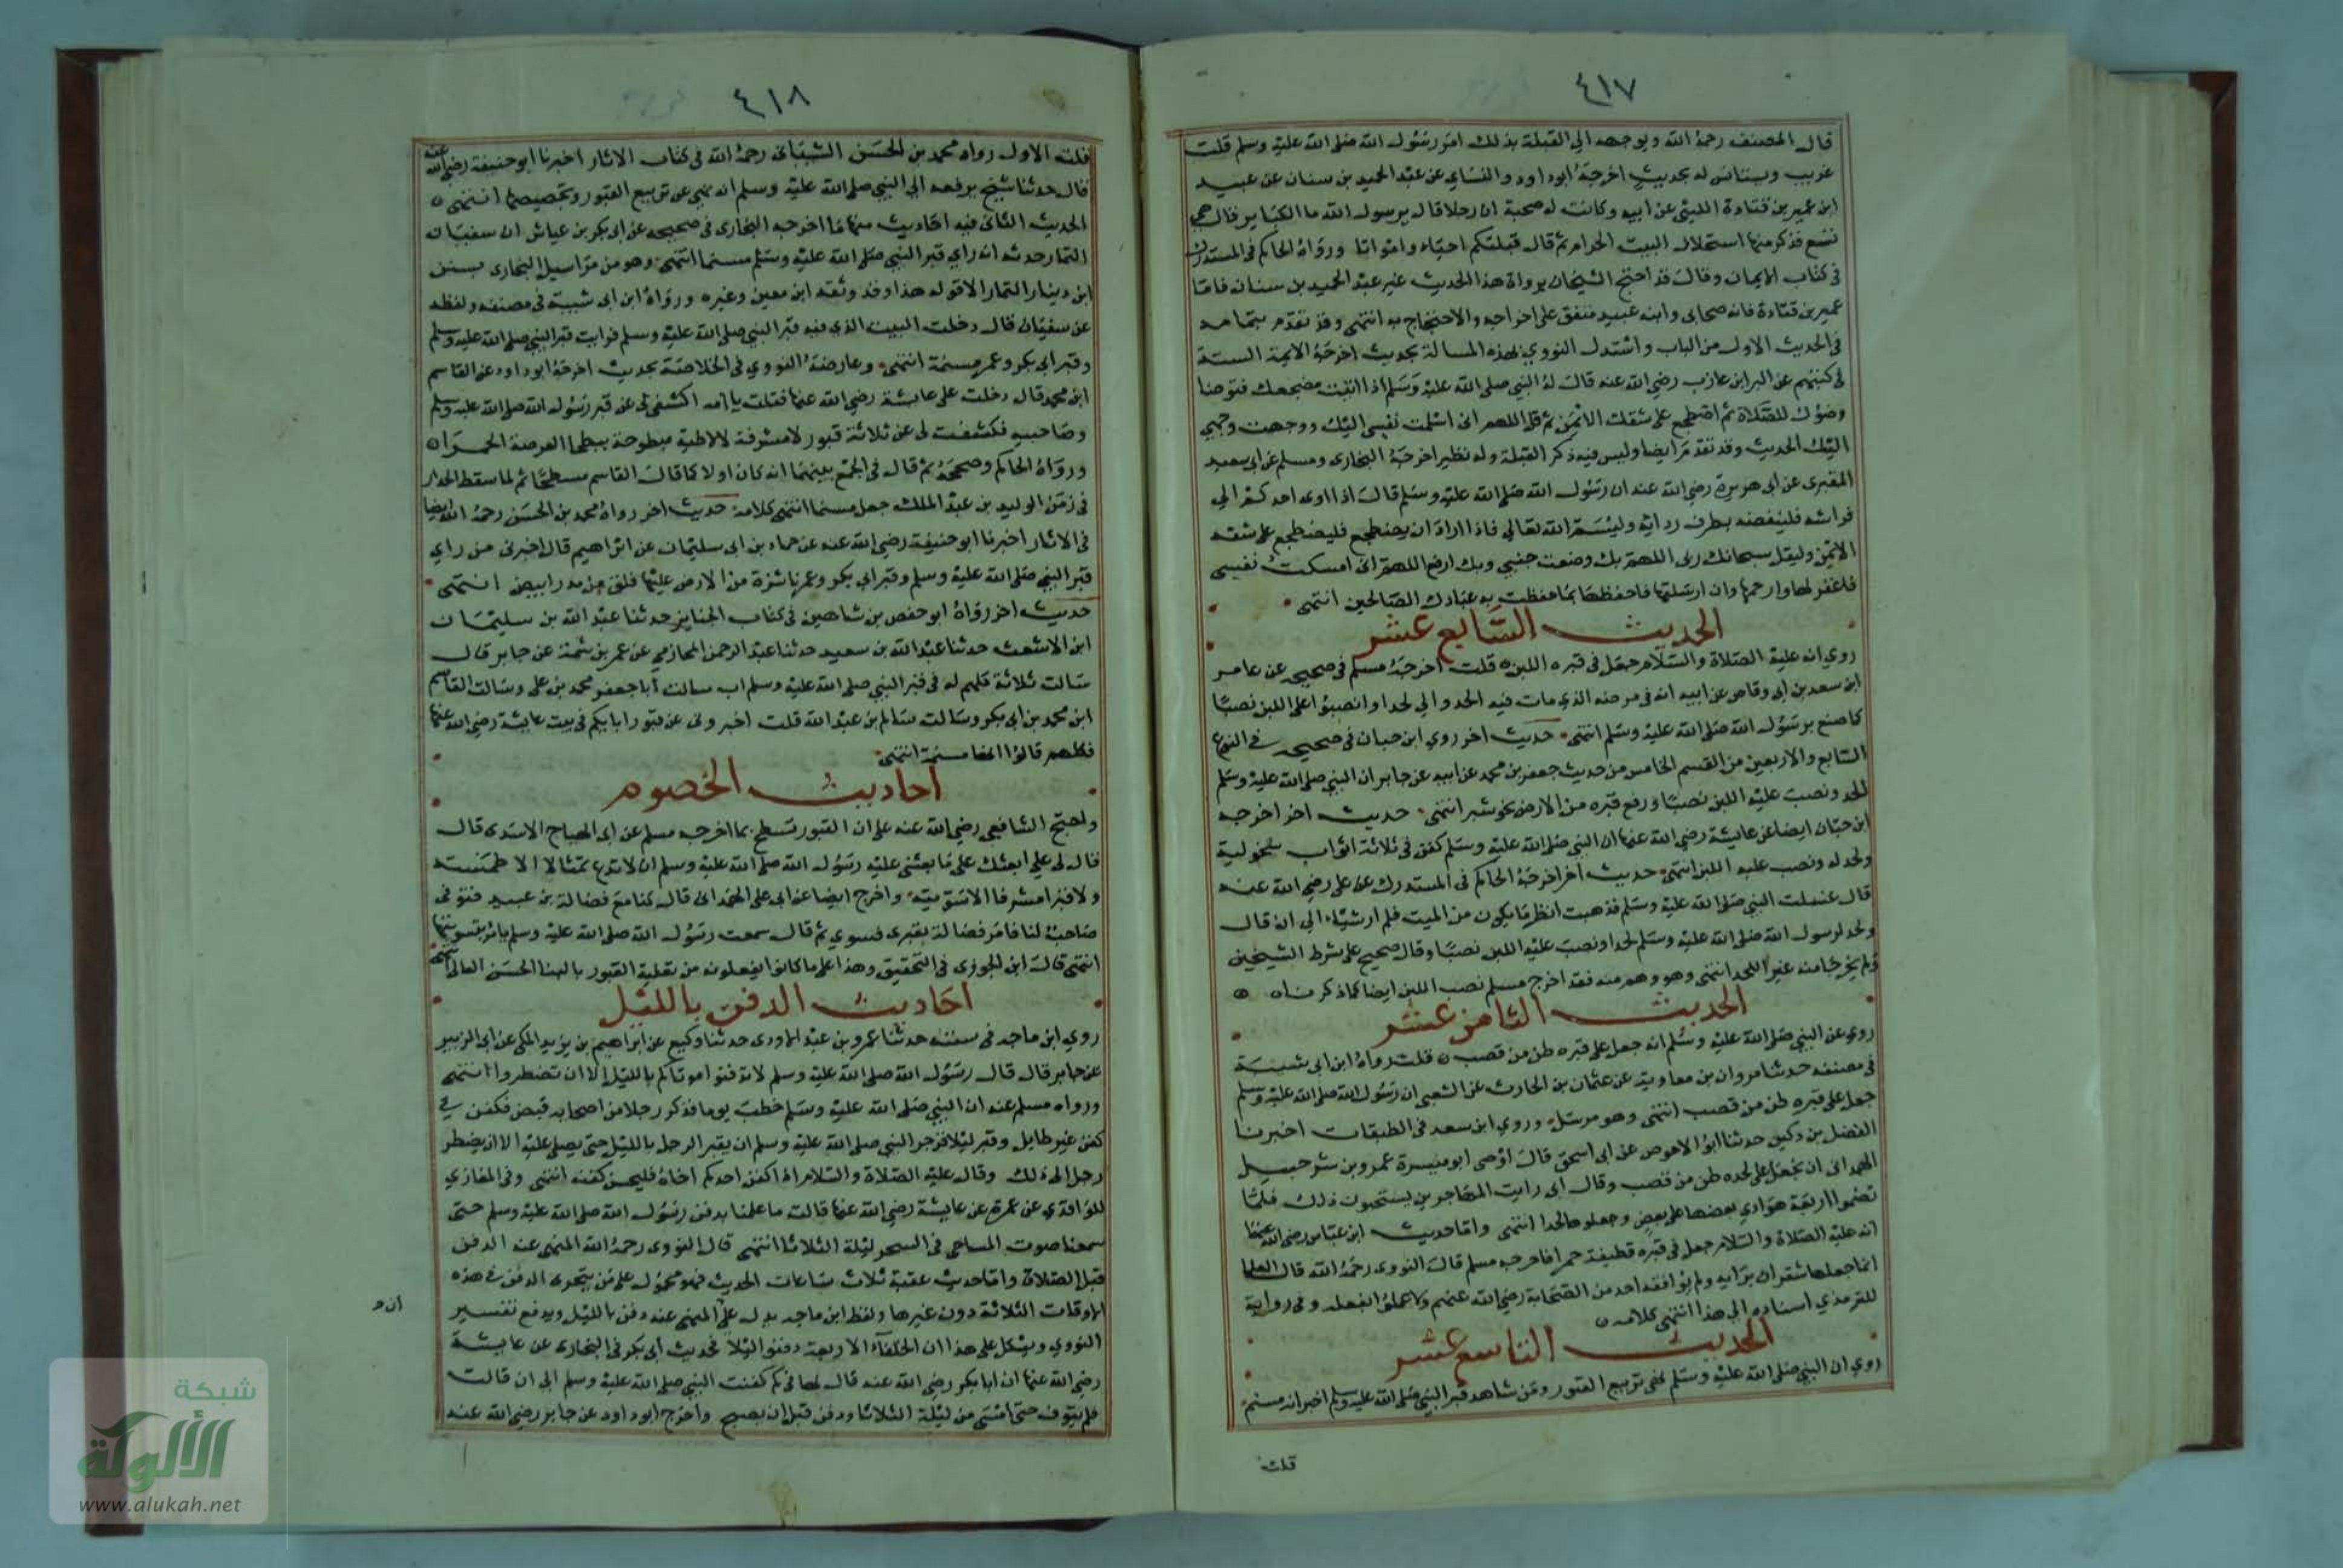 ٤١٧
قال المصنف رحمه الله ويوجهه الي القبلة بذلك امر رسول الله صلى الله عليه وسلم قلت
غريب ويستانس له بحديث اخرجه ابو داود والنساي عن عبد الحميد بن سنان عن عبيد
ابن عمير بن قتادة الليثي عن ابيه وكانت له صحبة ان رجلا قال يرسول الله ما الكباير قال هي
تسع فذكر منها استحلال البيت الحرام ثم قال قبلتكم احياء وامواتا ورواه الحاكم في المستدرك
في كتاب الايمان وقال قد احتج الشيخان برواة هذا الحديث غير عبد الحميد بن سنان فاما
عمير بن قتادة فانه صحابي وابنه عبيد متفق على اخراجه والاحتجاج به انتهى وقد تقدم بتمامه
في الحديث الاول من الباب واستدل النووي لهذه المسالة بحديث اخرجه الايمة الستة
في كتبهم عن البرا بن عازب رضي الله عنه قال قال له النبي صلى الله عليه وسلم اذا اتيت مضجعك فتوضا
وضوك للصلاة ثم اضطجع على شقك الايمن ثم قل اللهم اني اسلمت نفسي اليك ووجهت وجهي
اليك الحديث وقد تقدم ايضا وليس فيه ذكر القبلة وله نظير اخرجه البخارى ومسلم عن ابي سعيد
المقبرى عن ابي هريرة رضي الله عنه ان رسول الله صلى الله عليه وسلم قال اذا اوى احدكم الي
فراشه فلينفضه بطرف ردائه وليسم الله تعالي فاذا اراد ان يضطجع فليضطجع على شقه
الايمن وليقل سبحانك ربى اللهم بك وضعت جنبي وبك ارفع اللهم ان امسكت نفسي
فاغفر لها وارحمها وان ارسلتها فاحفظها بما حفظت به عبادك الصالحين انتهى
الحديث السابع عشر
روي انه عليه الصلاة والسلام جعل في قبره اللبن قلت اخرجه مسلم في صحيحه عن عامر
ابن سعد بن ابي وقاص عن ابيه انه في مرضه الذي مات فيه الحدوا لي لحدا وانصبوا على اللبن نصبا
كما صنع برسول الله صلى الله عليه وسلم انتهى حديث اخر روي ابن حبان في صحيحه في النوع
السابع والاربعين من القسم الخامس من حديث جعفر بن محمد عن ابيه عن جابر ان النبي صلى الله عليه وسلم
الحد ونصب عليه اللبن نصبا ورفع قبره من الارض نحو شبر انتهى حديث اخر اخرجه
ابن حبان ايضا عن عايشة رضي الله عنها ان النبي صلى الله عليه وسلم كفن في ثلاثة اثواب سحولية
ولحد له ونصب عليه اللبن انتهى حديث اخر اخرجه الحاكم في المستدرك عن علي رضي الله عنه
قال غسلت النبي صلى الله عليه وسلم فذهبت انظر ما يكون من الميت فلم ار شيئا الي ان قال
ولحد لرسول الله صلى الله عليه وسلم لحدا ونصب عليه اللبن نصبا وقال صحيح على شرط الشيخين
ولم يخرجا منه غير اللحد انتهى وهو وهم منه فقد اخرج مسلم نصب اللبن ايضا كما ذكرناه
الحديث الثامن عشر
روي عن النبي صلى الله عليه وسلم انه جعل على قبره طن من قصب قلت رواه ابن ابي شيبة
في مصنفه حدثنا مروان بن معاوية عن عثمان بن الحارث عن الشعبي ان رسول الله صلى الله عليه وسلم
جعل على قبره طن من قصب انتهى وهو مرسل وروي ابن سعد في الطبقات اخبرنا
الفضل بن دكين حدثنا ابو الاحوص عن ابي اسحق قال اوصى ابو ميسرة عمرو بن شرحبيل
الهمداني ان يجعل على لحده طن من قصب وقال اني رايت المهاجرين يستحبون ذلك فلما
ضموا اربعة هوادي بعضها على بعض وجعلوها لحدا انتهى واما حديث ابن عباس رضي الله عنهما
انه عليه الصلاة والسلام جعل في قبره قطيفة حمرا فاخرجه مسلم قال النووى رحمه الله قال العلما
انما جعلها شقران برايه ولم يوافقه احد من الصحابة رضي الله عنهم ولا علموا بفعله وفي رواية
للترمذي اسناده الي هذا انتهى كلامه
الحديث التاسع عشر
روي ان النبي صلى الله عليه وسلم نهى تربيع القبور ومن شاهد قبر النبي صلى الله عليه وسلم اخبر انه مسنم
قلت
٤١٨
قلت الاول رواه محمد بن الحسن الشيباني رحمه الله في كتاب الاثار اخبرنا ابو حنيفة رضي الله عنه
قال حدثنا شيخ يرفعه الي النبي صلى الله عليه وسلم انه نهي عن تربيع القبور وتجصيصها انتهى
الحديث الثاني فيه احاديث منها ما اخرجه البخارى في صحيحه عن ابي بكر بن عياش ان سفيان
التمار حدثه انه راي قبر النبي صلى الله عليه وسلم مسنما انتهى وهو من مراسيل البخارى
ابن دينار التمار الا قوله هذا وقد وثقه ابن معين وغيره ورواه ابن ابي شيبة في مصنفه ولفظه
عن سفيان قال دخلت البيت الذي فيه قبر النبي صلى الله عليه وسلم فرايت قبر النبي صلى الله عليه وسلم
وقبر ابي بكر وعمر مسنمة انتهى وعارضه النووي في الخلاصة بحديث اخرجه ابو داود عن القاسم
ابن محمد قال دخلت على عايشة رضي الله عنها فقلت يا امه اكشفي لي عن قبر رسول الله صلى الله عليه وسلم
وصاحبيه فكشفت لي عن ثلاثة قبور لا مشرفة لا لاطية مبطوحة ببطحا العرصة الحمرا
ورواه الحاكم وصححه ثم قال في الجمع بينهما انه كان اولا كما قال القاسم مسطحا ثم لما سقط الجدار
في زمن الوليد بن عبد الملك جعل مسنما انتهى كلامه حديث اخر رواه محمد بن الحسن رحمه الله ايضا
في الاثار اخبرنا ابو حنيفة رضي الله عنه عن حماد بن ابي سليمان عن ابراهيم قال اخبرني من راي
قبر النبي صلى الله عليه وسلم وقبر ابي بكر وعمر ناشزة من الارض عليها فلق من مدر ابيض انتهى
حديث اخر رواه ابو حفص بن شاهين في كتاب الجنايز حدثنا عبد الله بن سليمان
ابن الاشعث حدثنا عبد الله بن سعيد حدثنا عبد الرحمن المحاربي عن عمر بن شمة عن جابر قال
سالت ثلاثة كلهم له في قبر النبي صلى الله عليه وسلم اب سالت ابا جعفر محمد بن علي وسالت القاسم
ابن محمد بن ابي بكر وسالت سالم بن عبد الله قلت اخبروني عن قبور ابايكم في بيت عايشة رضي الله عنها
فكلهم قالوا انها مسنمة انتهى
احاديث الخصوم
واحتج الشافعي رضي الله عنه على ان القبور تسطح بما اخرجه مسلم عن ابي الهياج الاسدى قال
قال لي علي ابعثك على ما بعثني عليه رسول الله صلى الله عليه وسلم ان لا تدع تمثالا الا طمسته
ولا قبرا مشرفا الا سويته واخرج ايضا عن ابي على الهمداني قال كنا مع فضالة بن عبيد فتوفى
صاحب لنا فامر فضالة بقبرى فسوي ثم قال سمعت رسول الله صلى الله عليه وسلم يامر بتسويتها
انتهى قال ابن الجوزى في التحقيق وهذا على ما كانوا يفعلونه من تعلية القبور بالبنا الحسن العالي انتهى
احاديث الدفن بالليل
روي ابن ماجه في سننه حدثنا عمرو بن عبد الاودى حدثنا وكيع عن ابراهيم بن يزيد المكي عن ابي الزبير
عن جابر قال قال رسول الله صلى الله عليه وسلم لا تدفنوا موتاكم بالليل الا ان تضطروا انتهى
ورواه مسلم عنه ان النبي صلى الله عليه وسلم خطب يوما فذكر رجلا من اصحابه قبض فكفن في
كفن غير طايل وقبر ليلا فزجر النبي صلى الله عليه وسلم ان يقبر الرجل بالليل حتى يصلى عليه الا ان يضطر
رجل الى ذلك وقال عليه الصلاة والسلام اذا كفن احدكم اخاه فليحسن كفنه انتهى وفي المغازي
للواقدي عن عمرة عن عايشة رضي الله عنها قالت ما علمنا بدفن رسول الله صلى الله عليه وسلم حتى
سمعنا صوت المساحي في السحر ليلة الثلاثا انتهى قال النووى رحمه الله المنهي عنه الدفن
قبل الصلاة واما حديث عقبة ثلاث ساعات الحديث فهو محمول على من يتحرى الدفن في هذه
الاوقات الثلاثة دون غيرها ولفظ ابن ماجه يدل على المنهي عنه دفن بالليل ويدفع تفسير
النووي ويشكل على هذا ان الخلفاء الاربعة دفنوا ليلا فحديث ابي بكر في البخارى عن عايشة
رضي الله عنها ان ابا بكر رضي الله عنه قال لها في كم كفنت النبي صلى الله عليه وسلم الي ان قالت
فلم يتوف حتى امسى من ليلة الثلاثا ودفن قبل ان يصبح واخرج ابو داود عن جابر رضي الله عنه
شبكة
الألوكة
www.alukah.net